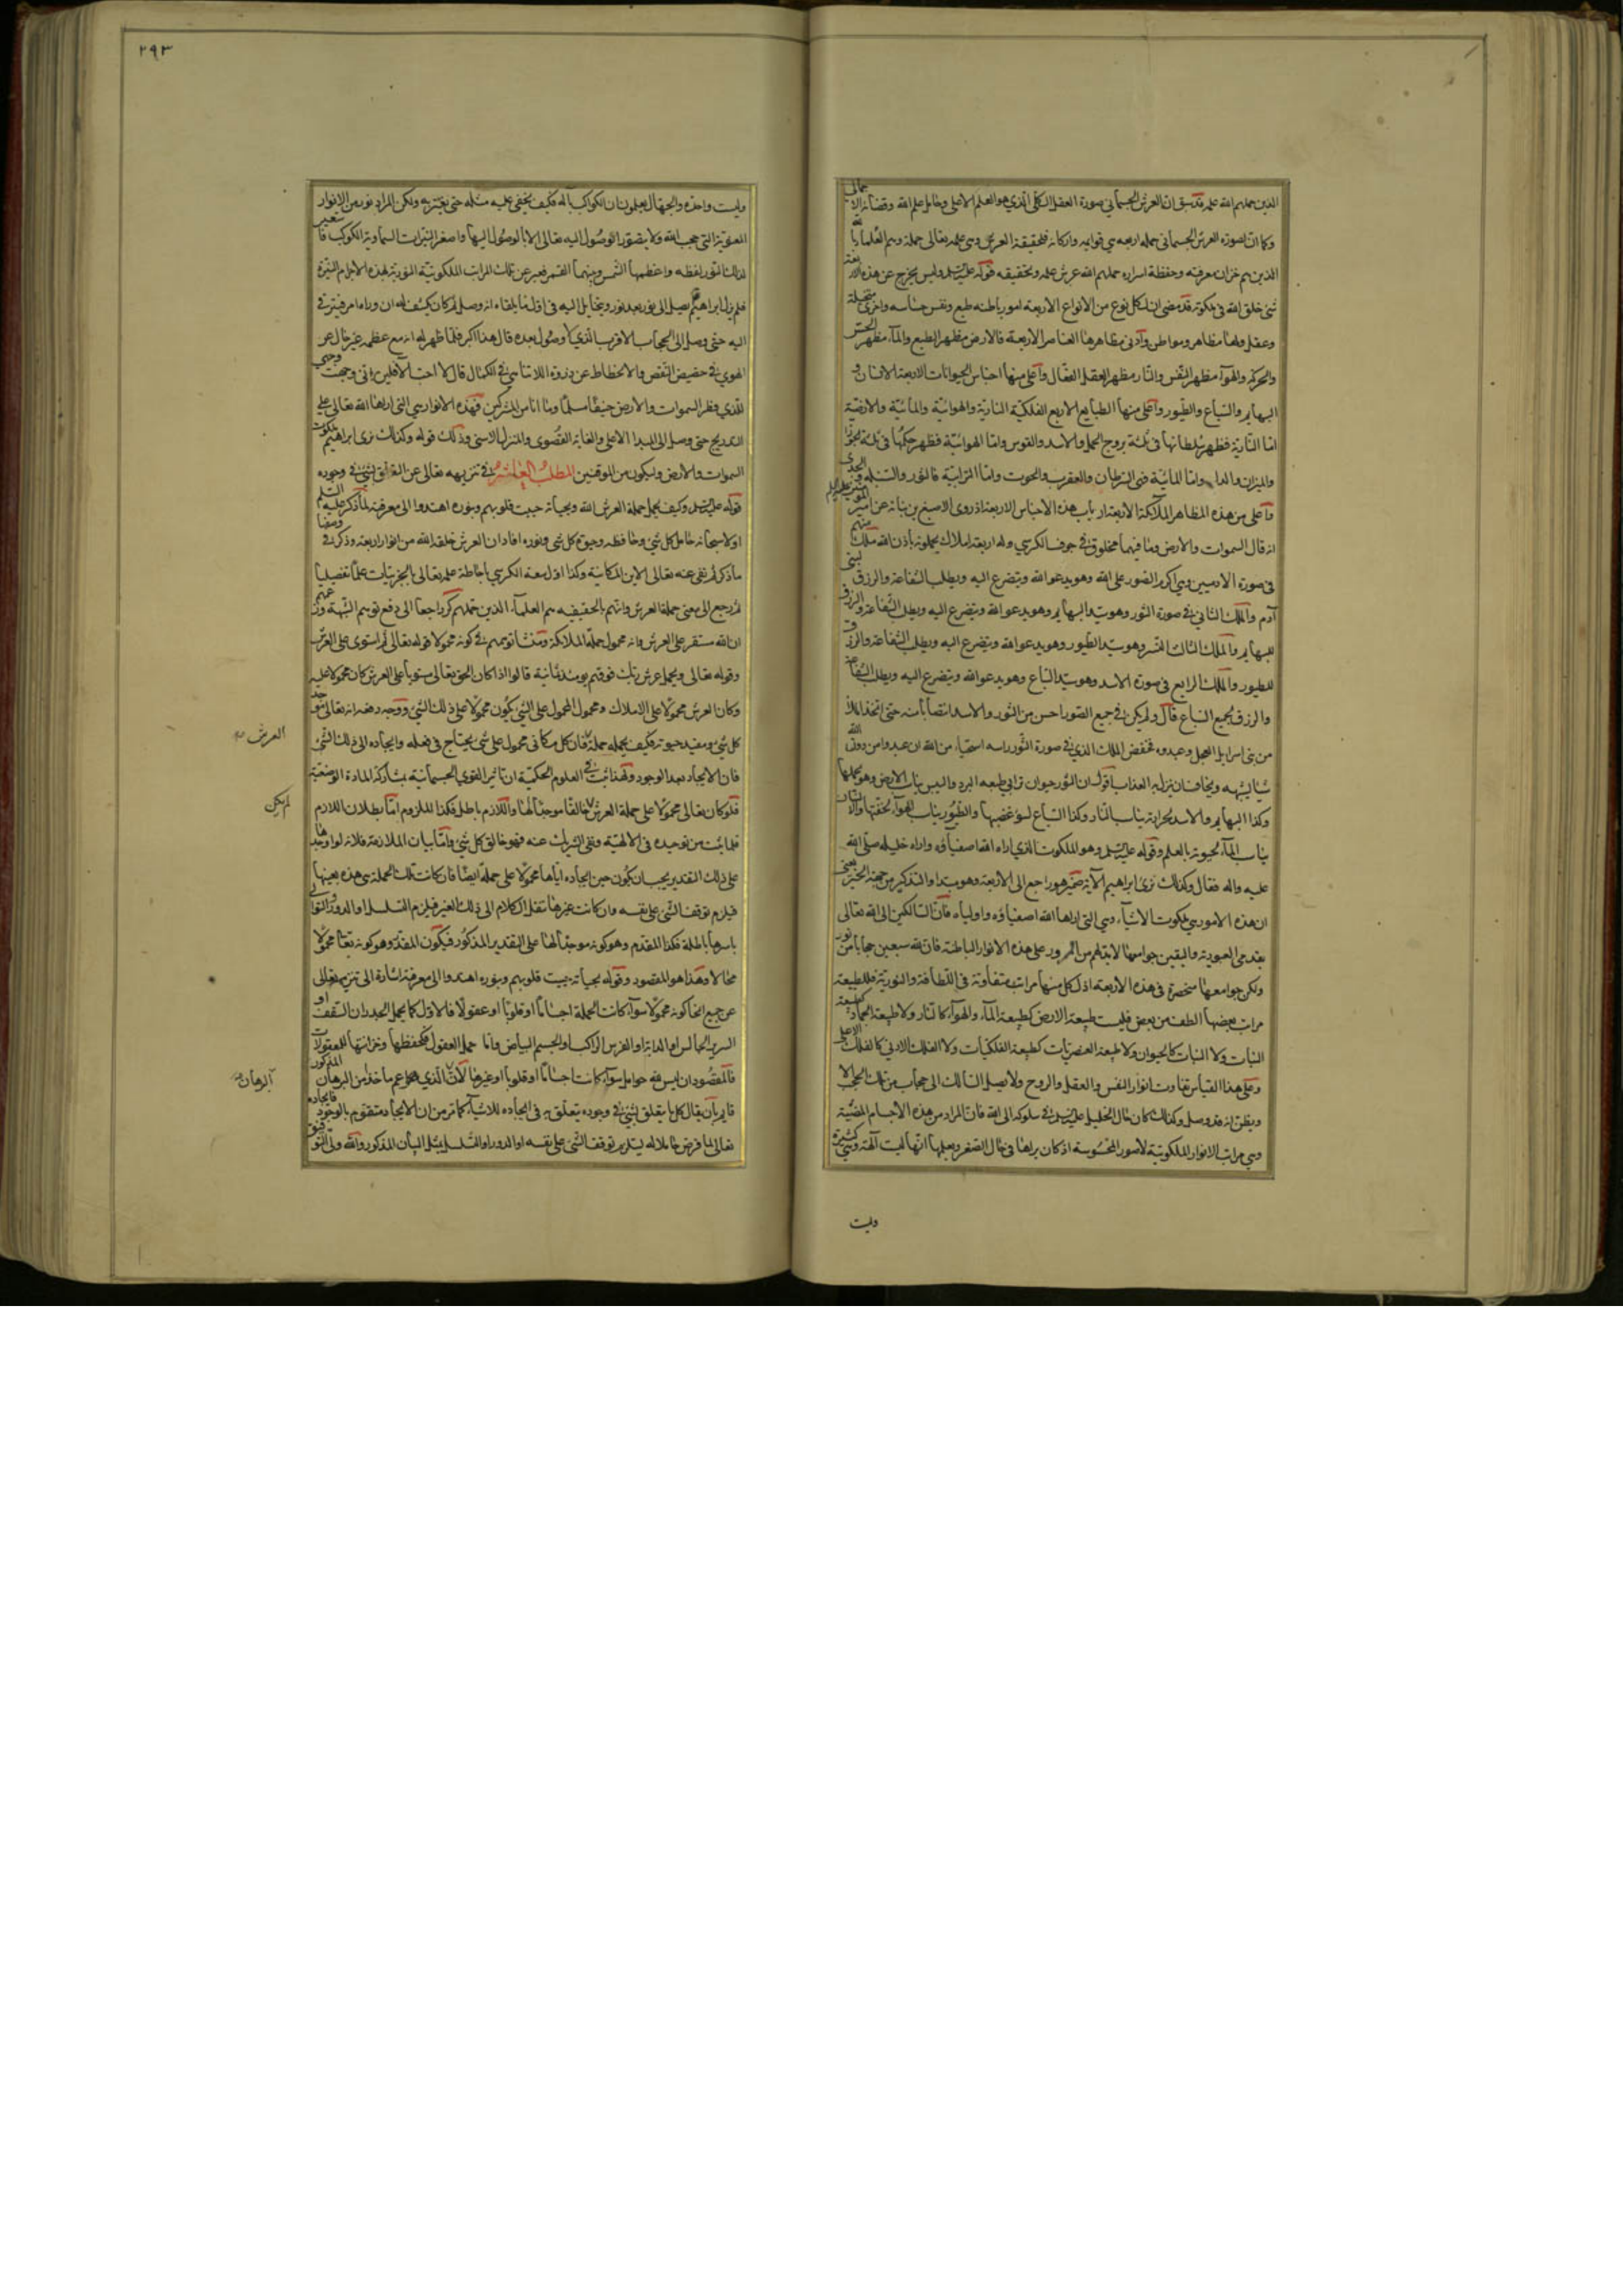 الذين حملهم الله علمه قد سبق ان العرش الجسماني صورة العقل الكلي الذي هو العلم الاعلى وحامل علم الله وقضائه الاجمالي
وكما ان لصورة العرش الجسماني حملة اربعة هي قوايمه واركانه فلحقيقة العرش وهي علمه تعالى حملة وهم العلماء بالله
الذين هم خزان معرفته وحفظة اسراره حملهم الله عرش علمه وتحقيقه قوله عليه السلم وليس يخرج عن هذه الاربعة
شئ خلق الله في ملكوته قد مضى ان لكل نوع من الانواع الاربعة امور باطنه طبع ونفس حساسه واخرى متخيلة
وعقل ولها مظاهر ومواطن وادنى مظاهرها العناصر الاربعة فالارض مظهر الطبع والماء مظهر الحس
والحركة والهواء مظهر النفس والنار مظهر العقل الفعال واعلى منها اجناس الحيوانات الاربعة الانسان و
البهايم والسباع والطيور واعلى منها الطبايع الاربع الفلكية النارية والهوائية والمائية والارضية
اما النارية فظهر سلطانها في ثلثة بروج الحمل والاسد والقوس واما الهوائية فظهر حكمها في ثلثة الجوزا
والميزان والدلو واما المائية ففي السرطان والعقرب والحوت واما الترابية فالثور والسنبله والجدي
واعلى من هذه المظاهر الملائكة الاربعة ارباب هذه الاجناس الاربعة اذ روى الاصبغ بن نباتة عن امير المومنين عليه السلم
انه قال السموات والارض وما فيهما مخلوق في جوف الكرسي وله اربعة املاك يحملونه باذن الله ملك منهم
في صورة الادميين وهي اكرم الصور على الله وهو يدعو الله ويتضرع اليه ويطلب الشفاعة والرزق لبني
آدم والملك الثاني في صورة الثور وهو سيد البهايم وهو يدعو الله ويتضرع اليه ويطلب الشفاعة والرزق
للبهايم والملك الثالث النسر وهو سيد الطيور وهو يدعو الله ويتضرع اليه ويطلب الشفاعة والرزق
للطيور والملك الرابع في صورة الاسد وهو سيد السباع وهو يدعو الله ويتضرع اليه ويطلب الشفاعة
والرزق لجميع السباع قال ولم يكن في جميع الصور احسن من الثور والاسد انتصابا منه حتى اتخذ الملأ
من بني اسرايل العجل وعبدوه فخفض الملك الذي في صورة الثور راسه استحياء من الله ان عبدوا من دون الله
شيئا يشبهه ويخاف ان ينزل به العذاب اقول ان الثور حيوان ترابي طبعه البرد واليبس يناسب الارض وهو يحملها
وكذا البهايم والاسد لحرارته يناسب النار وكذا السباع لسوء غضبها والطيور يناسب الهواء لخفتها والانسان
يناسب الماء لحيوته بالعلم وقوله عليه السلم وهو الملكوت الذي اراه الله اصفياؤه واراه خليله صلى الله
عليه واله فقال وكذلك نري ابراهيم الآية ضمير هو راجع الى الاربعة وهو مبتدا والتذكير من جهة الخبر يعني
ان هذه الامور هي ملكوت الاشياء وهي التي اراها الله اصفياؤه واولياه فان السالكين الى الله تعالى
بقدمي العبودية واليقين حواسهما لابد لهم من المرور على هذه الانوار الباطنة فان لله سبعين حجابا من نور
ولكن جوامعها منحصرة في هذه الاربعة اذ لكل منها مراتب متفاوتة في اللطافة والنورية فللطبيعة
مراتب بعضها الطف من بعض فليست طبيعة الارض كطبيعة الماء والهواء كالنار ولا طبيعة الجماد كطبيعة
النبات ولا النبات كالحيوان ولا طبيعة العنصريات كطبيعة الفلكيات ولا الفلك الادنى كالفلك الاعلى
وعلى هذا القياس تفاوت انوار النفس والعقل والروح ولا يصل السالك الى حجاب من تلك الحجب الا
ويظن انه قد وصل وكذلك كان حال الخليل عليه السلم في سلوكه الى الله فان المراد من هذه الاجسام المضيئة
وهي مراتب الانوار الملكوتية لا صور المحسوسة اذ كان يراها في حال الصغر ويعلمها انها ليست آلهة وهي كثيرة
وليست
٢٩٣
وليست واحدة والجهال يعلمون ان الكواكب ليست بآله فكيف يخفى عليه مثله حتى يغتر به ولكن المراد نور من الانوار
المعنوية التي حجب الله ولا يتصور الوصول اليه تعالى الا بالوصول اليها واصغر النيرات السماوية الكوكب فاستعير
لذلك النور لفظه واعظمها الشمس وبينهما القمر فعبر عن تلك المراتب الملكوتية النورية بهذه الاجرام النيرة
فلم يزل ابراهيم يصل الى نور بعد نور ويتخايل اليه في اول ما يلقاه انه وصل ثم كان يكشف له ان وراءه امر فيترقى
اليه حتى وصل الى الحجاب الاقرب الذي لا وصول بعده قال هذا اكبر فلما ظهر له انه مع عظمه غير خال عن
الهوي في حضيض النقص والانحطاط عن ذروة اللاتناهي في الكمال قال لا احب الآفلين اني وجهت وجهي
للذي فطر السموات والارض حنيفا مسلما وما انا من المشركين فهذه الانوار هي التي اراها الله تعالى على
التدريج حتى وصل الى المبدا الاعلى والغاية القصوى والمنزل الاسنى وذلك قوله وكذلك نري ابراهيم ملكوت
السموات والارض وليكون من الموقنين المطلب العاشر في تنزيهه تعالى عن التعلق بشئ في وجوده
قوله عليه السلم وكيف يحمل حملة العرش الله وبحياته حييت قلوبهم وبنوره اهتدوا الى معرفته لما ذكر عليه السلم
اولا سبحانه حامل كل شئ وحافظه وحيوة كل شئ ونوره افاد ان العرش خلقه الله من انوار اربعة وذكر في وصفها
ما ذكر ثم نفى عنه تعالى الاين المكانية وكذا اول سعة الكرسي باحاطة علمه تعالى بالجزئيات علما تفصيليا
ثم رجع الى معنى حملة العرش وانهم بالحقيقة هم العلماء الذين حملهم كر راجعا الى دفع توهم الشبهة وزعمهم
ان الله مستقر على العرش وانه محمول حملة الملائكة ومنشا توهمهم في كونه محمولا قوله تعالى ثم استوى على العرش
وقوله تعالى ويحمل عرش ربك فوقهم يومئذ ثمانية قالوا اذا كان الحق تعالى مستويا على العرش كان محمولا عليه
وكان العرش محمولا على الاملاك ومحمول المحمول على الشئ يكون محمولا على ذلك الشئ ووجه دفعه انه تعالى موجد
كل شئ ومفيد حيوته فكيف يحمله حملة العرش فان كل مكاني محمول على شئ يحتاج في فعله وايجاده الى ذلك الشئ
فان الايجاد بعد الوجود ولهذا ثبت في العلوم الحكمية ان تاثير القوى الجسمانية بمشاركة المادة الوضعية
فلو كان تعالى محمولا على حملة العرش لم يكن خالقا موجدا لها واللازم باطل فكذا الملزوم اما بطلان اللازم
فلما ثبت من توحيده في الالهية ونفي الشريك عنه فهو خالق كل شئ واما بيان الملازمة فلانه لو اوجدها
على ذلك التقدير يجب ان يكون حين ايجاده اياها محمولا على حملة ايضا فان كانت تلك الحملة هي هذه بعينها
فيلزم توقف الشئ على نفسه وان كانت غيرها ننقل الكلام الى ذلك الغير فيلزم التسلسل او الدور والتوالي
باسرها باطلة فكذا المقدم وهو كونه موجدا لها على التقدير المذكور فيكون المقدر وهو كونه تعالى محمولا
محالا وهذا هو المقصود وقوله بحياته حييت قلوبهم وبنوره اهتدوا الى معرفته اشارة الى تنزيهه تعالى
عن جميع انحاء كونه محمولا سواء كانت الحملة اجساما او قلوبا او عقولا فالاول كما يحمل الجدران السقف او
السرير الجالس او الدابة او الفرس الراكب او الجسم البياض واما حمل العقول فكحفظها وخزانتها للمعقولات
فالمقصود ان ليس لله حوامل سواء كانت اجساما او قلوبا او غيرها لان البرهان الذي هو اعم ماخذا من البرهان المذكور
قايم بان يقال كل ما يتعلق بشئ في وجوده يتعلق به في ايجاده للاشياء كما مر من ان الايجاد متقوم بالوجود فايجاده
تعالى لما فرض حاملا له يستلزم توقف الشئ على نفسه او الدور او التسلسل بمثل البيان المذكور والله ولي التوفيق
العرش
لم يكن
البرهان